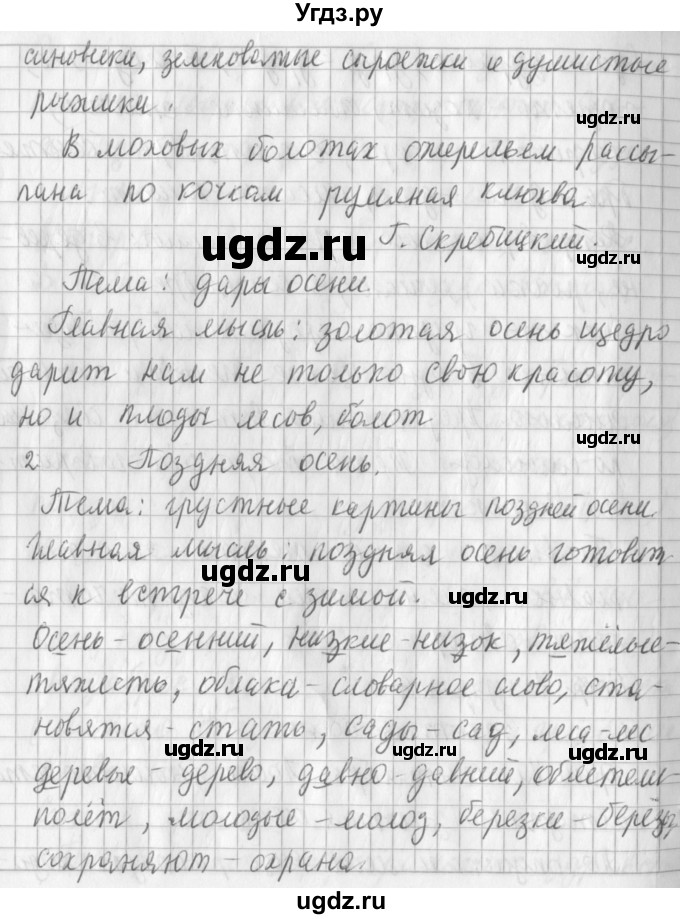 Угдз.ру
синовики, земковатые сыроежки и думистые
рыжики.
ugdz.ru
В моховых болотах ожерельем рассы-
ugdz.ru
пана по кочкам румяная клюква
ugdz.ru
Г. Скребицкий.
ugdz.ru
Тема: дары осени.
Главная мысль: золотая осень щедро
ugdz.ru
дарит нам не только свою красоту,
но и плоды лесов, болот
ugdz.ru
2 Поздняя осень.
Тема: грустные картины поздней осени.
Главная мысль: поздняя осень готовит-
ugdz.ru
ся к встрече с зимой.
ugdz.ru
Осень - осенний, низкие - низок, тяжёлые-
тяжесть, облака - словарное слово, ста-
новятся - стать, сады - сад, леса - лес
ugdz.ru
ugdz.ru
деревья - дерево, давно - давний, облетели-
полёт, молодые - молод, березки - берёза,
ugdz.ru
сохраняют - охрана.
ugdz.ru